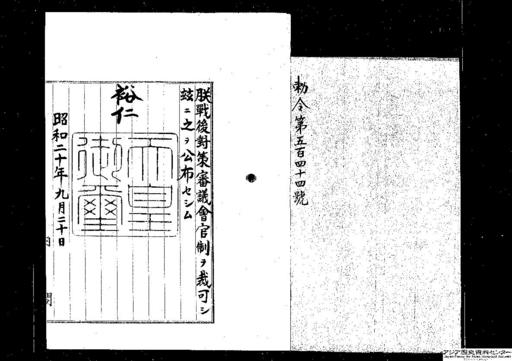 勅令第五百四十四號
朕戰後對策審議會官制ヲ裁可シ
玆ニ之ヲ公布セシム
裕仁
天皇御璽
昭和二十年九月二十日
アジア歴史資料センター
Japan Center for Asian Historical Records